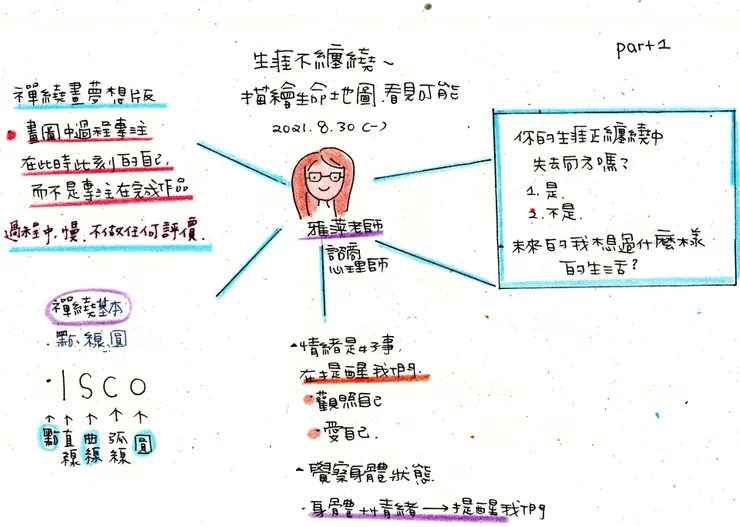 part 1
生涯不纏繞~
描繪生命地圖.看見可能
2021.8.30 (一)
雅萍老師
諮商
心理師
禪繞畫夢想版
畫圖中過程專注
在此時此刻的自己,
而不是專注在完成作品
過程中,慢.不做任何評價.
你的生涯正纏繞中
失去方向嗎?
1.是.
2.不是.
未來的我想過什麼樣
的生活?
禪繞基本
·點.線.圓
· I S C O
↑ ↑ ↑ ↑ ↑
點 直線 曲線 弧線 圓
·情緒是好事,
在提醒我們.
·觀照自己
·愛自己.
·覺察身體狀態.
·身體+情緒→提醒我們